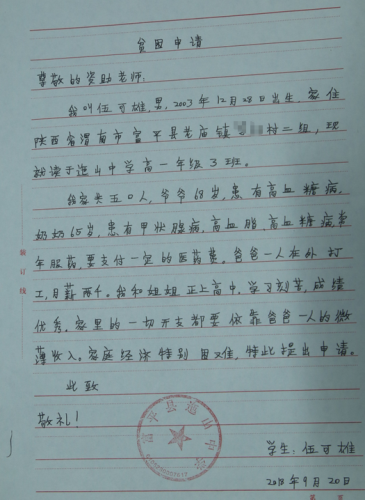 贫困申请
尊敬的资助老师:
我叫伍可雄,男,2003年12月28日出生,家住
陕西省渭南市富平县老庙镇村二组,现
就读于迤山中学高一年级3班。
我家共五口人,爷爷68岁,患有高血糖病,
奶奶65岁,患有甲状腺病,高血脂,高血糖病常
年服药,要支付一定的医药费。爸爸一人在外打
工,月薪两千。我和姐姐正上高中,学习刻苦,成绩
优秀,家里的一切开支都要依靠爸爸一人的微
薄收入。家庭经济特别困难,特此提出申请。
此致
敬礼!
富平县迤山中学
学生:伍可雄
2018年9月20日
装订线
第 页